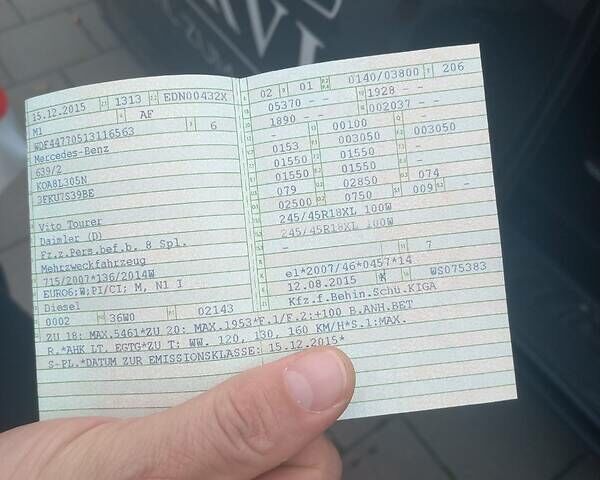 15.12.2015 1313 EDN00432X
M1 AF
WDF44770513116563 6
Mercedes-Benz
639/2
KOA8L305N
3FKU7S39BE
Vito Tourer
Daimler (D)
Fz.z.Pers.bef.b. 8 Spl.
Mehrzweckfahrzeug
715/2007*136/2014W
EURO6;W;PI/CI; M, N1 I
Diesel
0002 36W0 02143
02 01 0140/03800 206
05370 - - 1928 - -
1890 - - 002037 - -
- 00100 -
0153 003050 003050
01550 01550 -
01550 01550 -
079 02850 074
02500 0750 009 -
245/45R18XL 100W
245/45R18XL 100W
-
7
e1*2007/46*0457*14
12.08.2015 K WS075383
Kfz.f.Behin.Schü.KIGA
ZU 18: MAX.5461*ZU 20: MAX.1953*F.1/F.2:+100 B.ANH.BET
R.*AHK LT. EGTG*ZU T: WW. 120, 130, 160 KM/H*S.1:MAX.
S-PL.*DATUM ZUR EMISSIONSKLASSE: 15.12.2015*